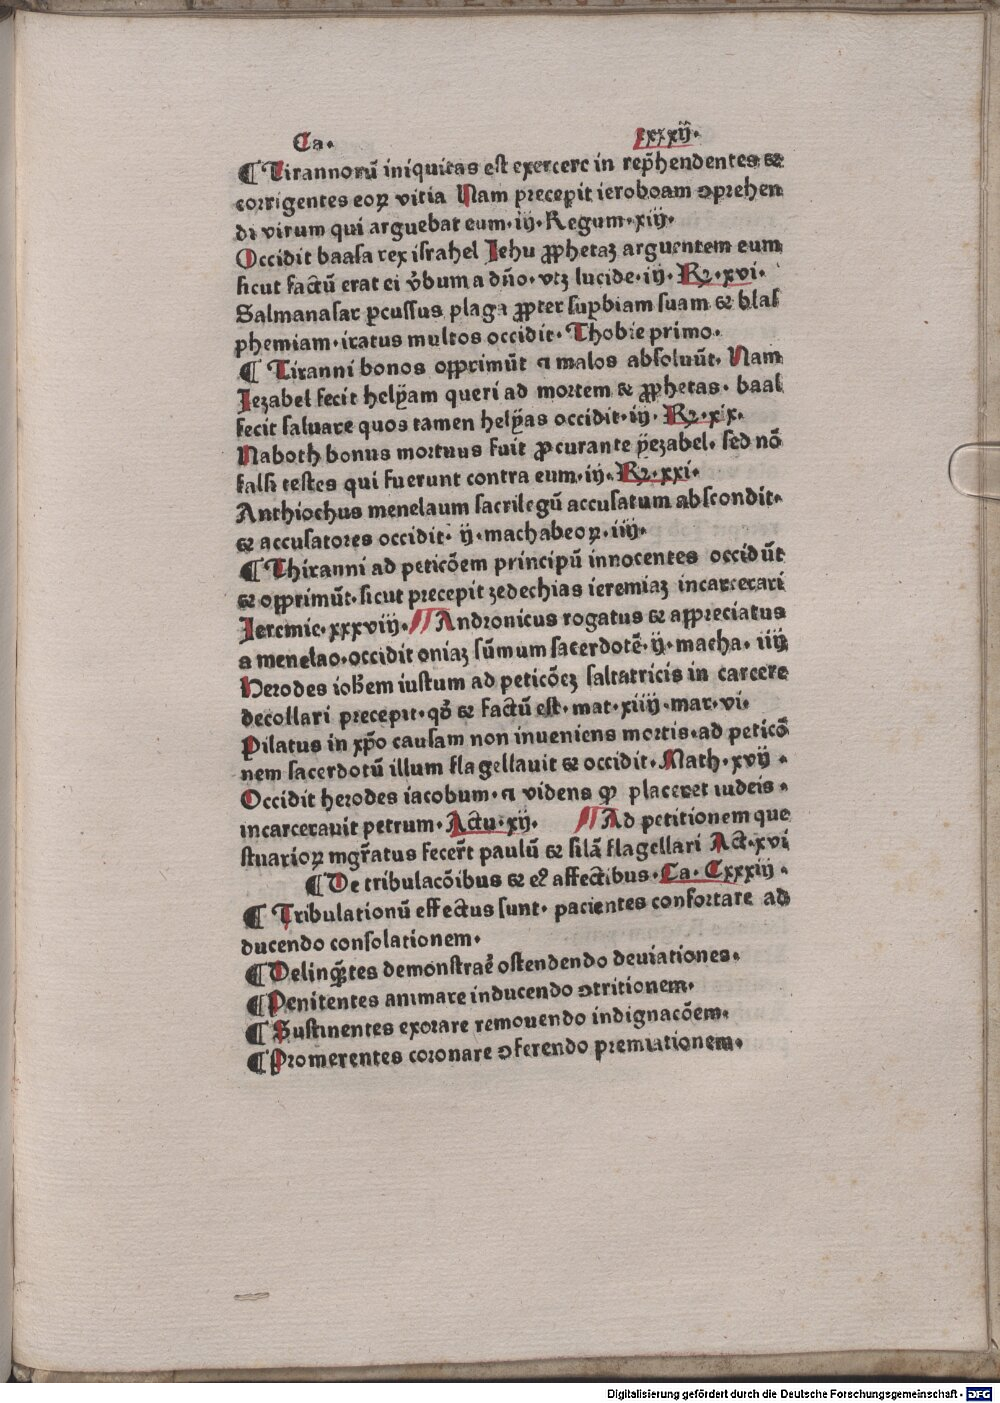 Ca. cxxxij.
¶ Tirannorū iniquitas est exercere in rep̄hendentes ⁊
corrigentes eoꝝ vitia Nam precepit ieroboam ↄprehen
di virum qui arguebat eum. iij. Regum. xiij.
Occidit baasa rex israhel Jehu ꝓphetaꝫ arguentem eum
sicut factū erat ei v̄bum a dn̄o. vtꝫ lucide. iij. Rꝫ. xvi.
Salmanasar ꝑcussus plaga ꝓpter suꝑbiam suam ⁊ blas
phemiam. iratus multos occidit. Thobie primo.
¶ Tiranni bonos opprimūt ⁊ malos absoluūt. Nam
Jezabel fecit helyam queri ad mortem ⁊ ꝓphetas. baal
fecit saluare quos tamen helyas occidit. iij. Rꝫ. xix.
Naboth bonus mortuus fuit ꝓcurante yezabel. sed nō
falsi testes qui fuerunt contra eum. iij. Rꝫ. xxi.
Anthiochus menelaum sacrilegū accusatum abscondit.
⁊ accusatores occidit. ij. machabeoꝝ. iiij.
¶ Thiranni ad peticōem principū innocentes occidūt
⁊ opprimūt. sicut precepit zedechias ieremiaꝫ incarcerari
Jeremie. xxxviij. Andronicus rogatus ⁊ appreciatus
a menelao. occidit oniaꝫ sūmum sacerdotē. ij. macha. iiij
Herodes ioh̄em iustum ad peticōeꝫ saltatricis in carcere
decollari precepit. qđ ⁊ factū est. mat. xiiij. mar. vi.
Pilatus in xp̄o causam non inueniens mortis. ad peticō
nem sacerdotū illum flagellauit ⁊ occidit. Math. xvij.
Occidit herodes iacobum. ⁊ videns ꝙ placeret iudeis.
incarcerauit petrum. Actu. xij. Ad petitionem que
stuarioꝝ mgr̄atus fecer̄t paulū ⁊ silā flagellari Act. xvi
¶ De tribulacōibus ⁊ eꝰ affectibus. Ca. Cxxxiij.
¶ Tribulationū effectus sunt. pacientes confortare ad
ducendo consolationem.
¶ Delinqn̄tes demonstrar̄ ostendendo deuiationes.
¶ Penitentes animare inducendo ↄtritionem.
¶ Sustinentes exorare remouendo indignacōem.
¶ Promerentes coronare ↄferendo premiationem.
Digitalisierung gefördert durch die Deutsche Forschungsgemeinschaft - DFG